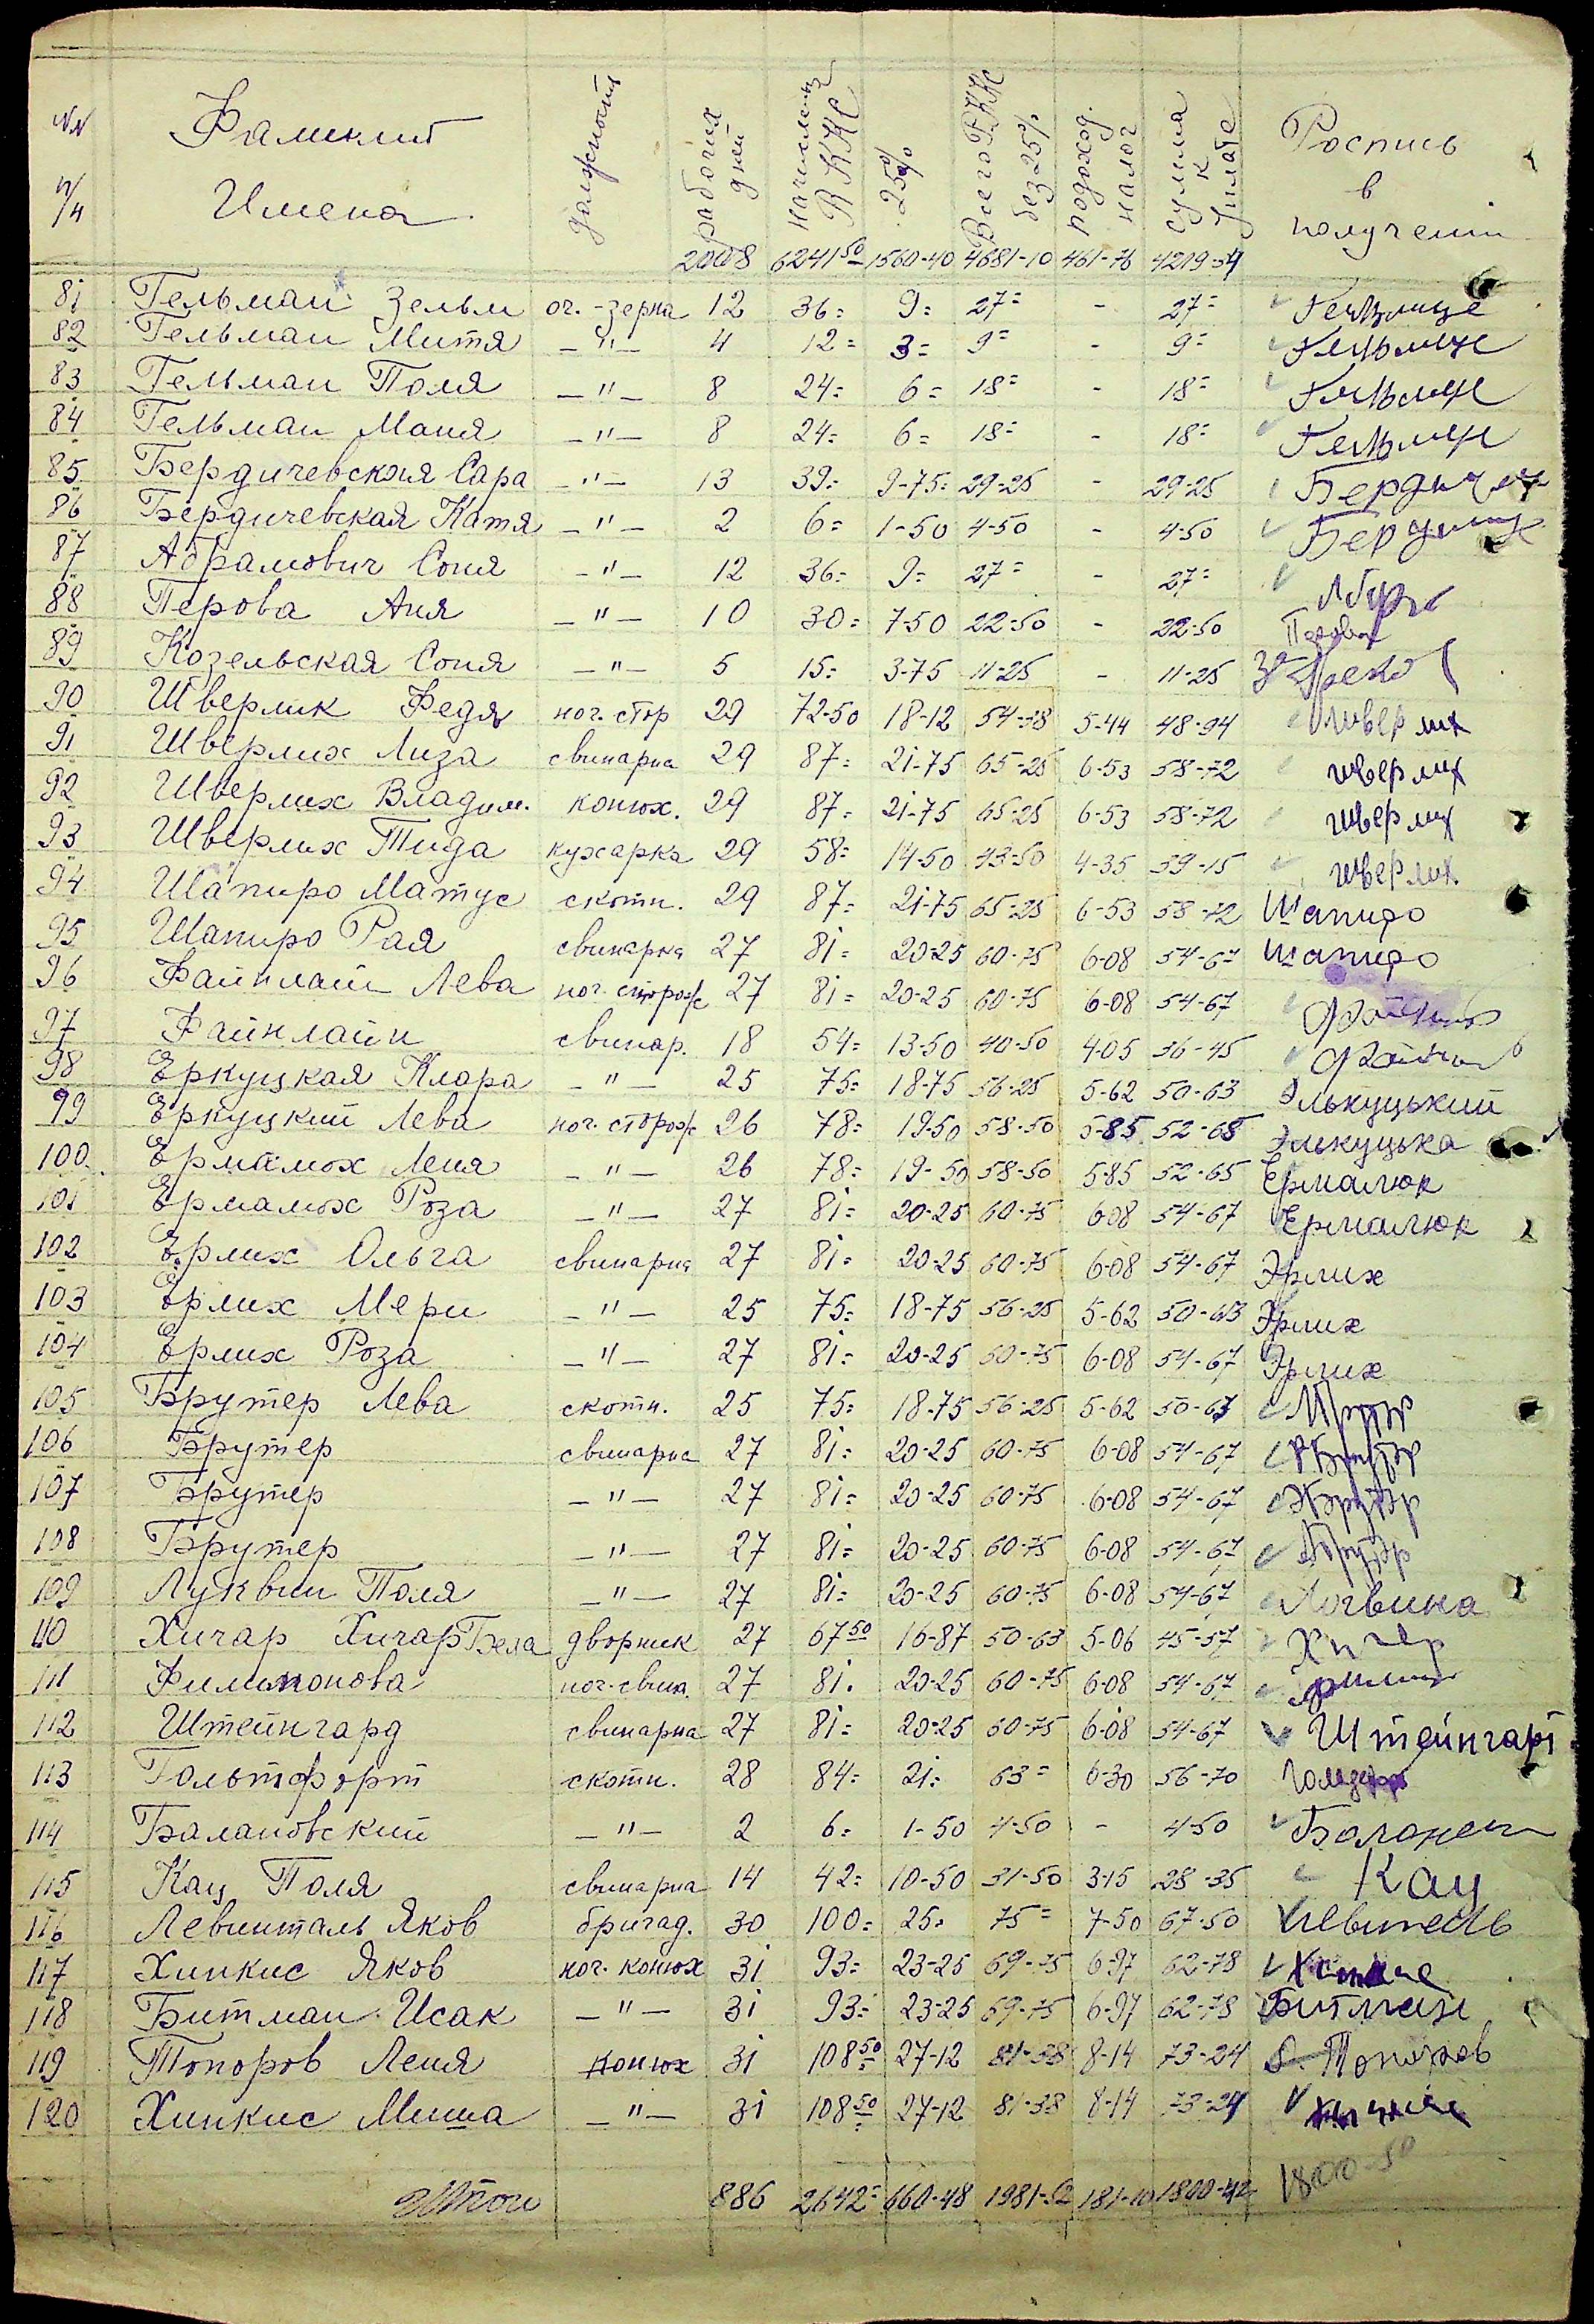 NN Фамилия должность рабочих дней начислено RKKC 25% Всего RKKC без 25% подоход. налог сумма к уплате Роспись
п/ч Имена в получении
2008 6241 50 1560-40 4681-10 461-76 4219-34
81 Гельман Зельм оч.-зерна 12 36= 9= 27= - 27=
82 Гельман Митя —"— 4 12= 3= 9= - 9= Гельман
83 Гельман Поля —"— 8 24= 6= 18= - 18= Гельман
84 Гельман Маня —"— 8 24= 6= 18= - 18= Гельман
85 Бердичевская Сара —"— 13 39= 9-75= 29-25 - 29-25
86 Бердичевская Катя —"— 2 6= 1-50 4-50 - 4-50
87 Абрамович Соня —"— 12 36= 9= 27= - 27=
88 Перова Аня —"— 10 30= 7-50 22-50 - 22-50 Перова
89 Козельская Соня —"— 5 15= 3-75 11-25 - 11-25
90 Шверлик Федя ноч. стор 29 72-50 18-12 54-38 5-44 48-94 шверлих
91 Шверлих Лиза свинарка 29 87= 21-75 65-25 6-53 58-72 шверлих
92 Шверлих Владим. конюх. 29 87= 21-75 65-25 6-53 58-72 шверлих
93 Шверлих Тида кухарка 29 58= 14-50 43-50 4-35 39-15 шверлих.
94 Шапиро Матус скотн. 29 87= 21-75 65-25 6-53 58-72 Шапиро
95 Шапиро Рая свинарка 27 81= 20-25 60-75 6-08 54-67 Шапиро
96 Файнлайн Лева ноч. сторож 27 81= 20-25 60-75 6-08 54-67
97 Файнлайн свинар. 18 54= 13-50 40-50 4-05 36-45
98 Еркуцкая Клара —"— 25 75= 18-75 56-25 5-62 50-63 Элькуцький
99 Еркуцкий Лева ноч. сторож 26 78= 19-50 58-50 5-85 52-65 Элькуцька
100. Ермамох Леня —"— 26 78= 19-50 58-50 5-85 52-65 Ермалюк
101 Ермамох Роза —"— 27 81= 20-25 60-75 6-08 54-67 Ермалюк
102 Ерлих Ольга свинарка 27 81= 20-25 60-75 6-08 54-67 Эрлих
103 Ерлих Мери —"— 25 75= 18-75 56-25 5-62 50-63 Эрлих
104 Ерлих Роза —"— 27 81= 20-25 60-75 6-08 54-67 Эрлих
105 Брутер Лева скотн. 25 75= 18-75 56-25 5-62 50-63
106 Брутер свинарка 27 81= 20-25 60-75 6-08 54-67
107 Брутер —"— 27 81= 20-25 60-75 6-08 54-67
108 Брутер —"— 27 81= 20-25 60-75 6-08 54-67
109 Луквин Поля —"— 27 81= 20-25 60-75 6-08 54-67 Логвина
110 Хичар Хичар Бела дворник 27 67 50 16-87 50-63 5-06 45-57
111 Филимонова ноч. свин. 27 81. 20-25 60-75 6-08 54-67
112 Штейнгард свинарка 27 81= 20-25 60-75 6-08 54-67 Штейнгарт
113 Гольтфорт скотн. 28 84= 21= 63= 6-30 56-70
114 Балановский —"— 2 6= 1-50 4-50 - 4-50
115 Кац Поля свинарка 14 42= 10-50 31-50 3-15 28-35 Кац
116 Левинталь Яков бригад. 30 100= 25= 75= 7-50 67-50
117 Хипкис Яков ноч. конюх 31 93= 23-25 69-75 6-97 62-78
118 Битман Исак —"— 31 93= 23-25 69-75 6-97 62-78 Битман
119 Топоров Леня конюх 31 108 50 27-12 81-38 8-14 73-24 Топоров
120 Хипкис Миша —"— 31 108 50 27-12 81-38 8-14 73-24
Итого 886 2642= 660-48 1981-52 181-10 1800-42 1800-50